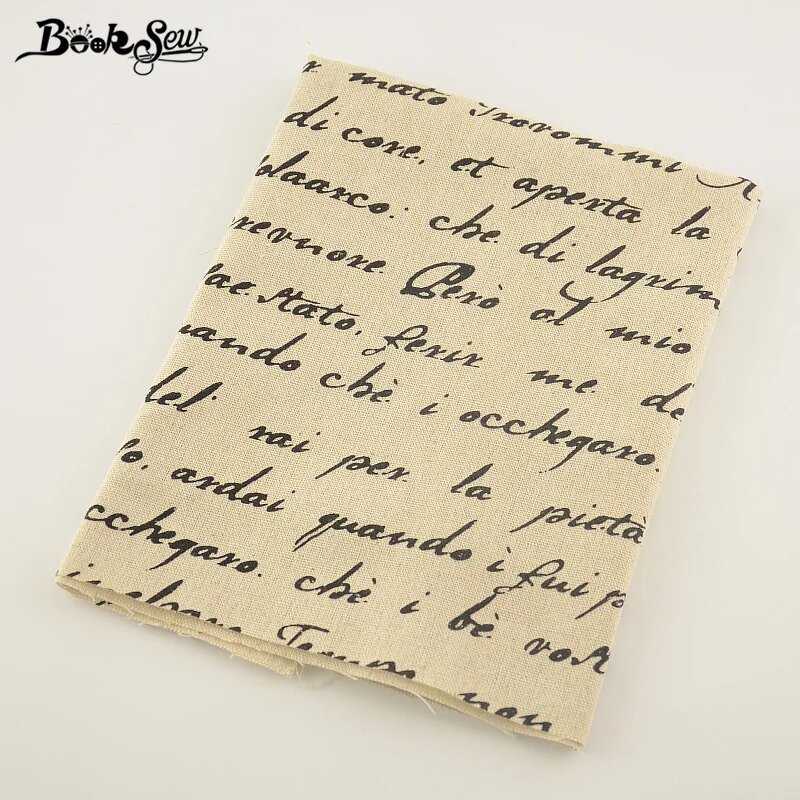 Book Sew
mato Trovommi
di core, et aperta la
che di lagrim
Però al mio
Stato, ferir me de
uando chè i occhegaro.
del rai per la pietà
o, andai quando i fui p
occhegaro. chè i bè vost
Tempo non